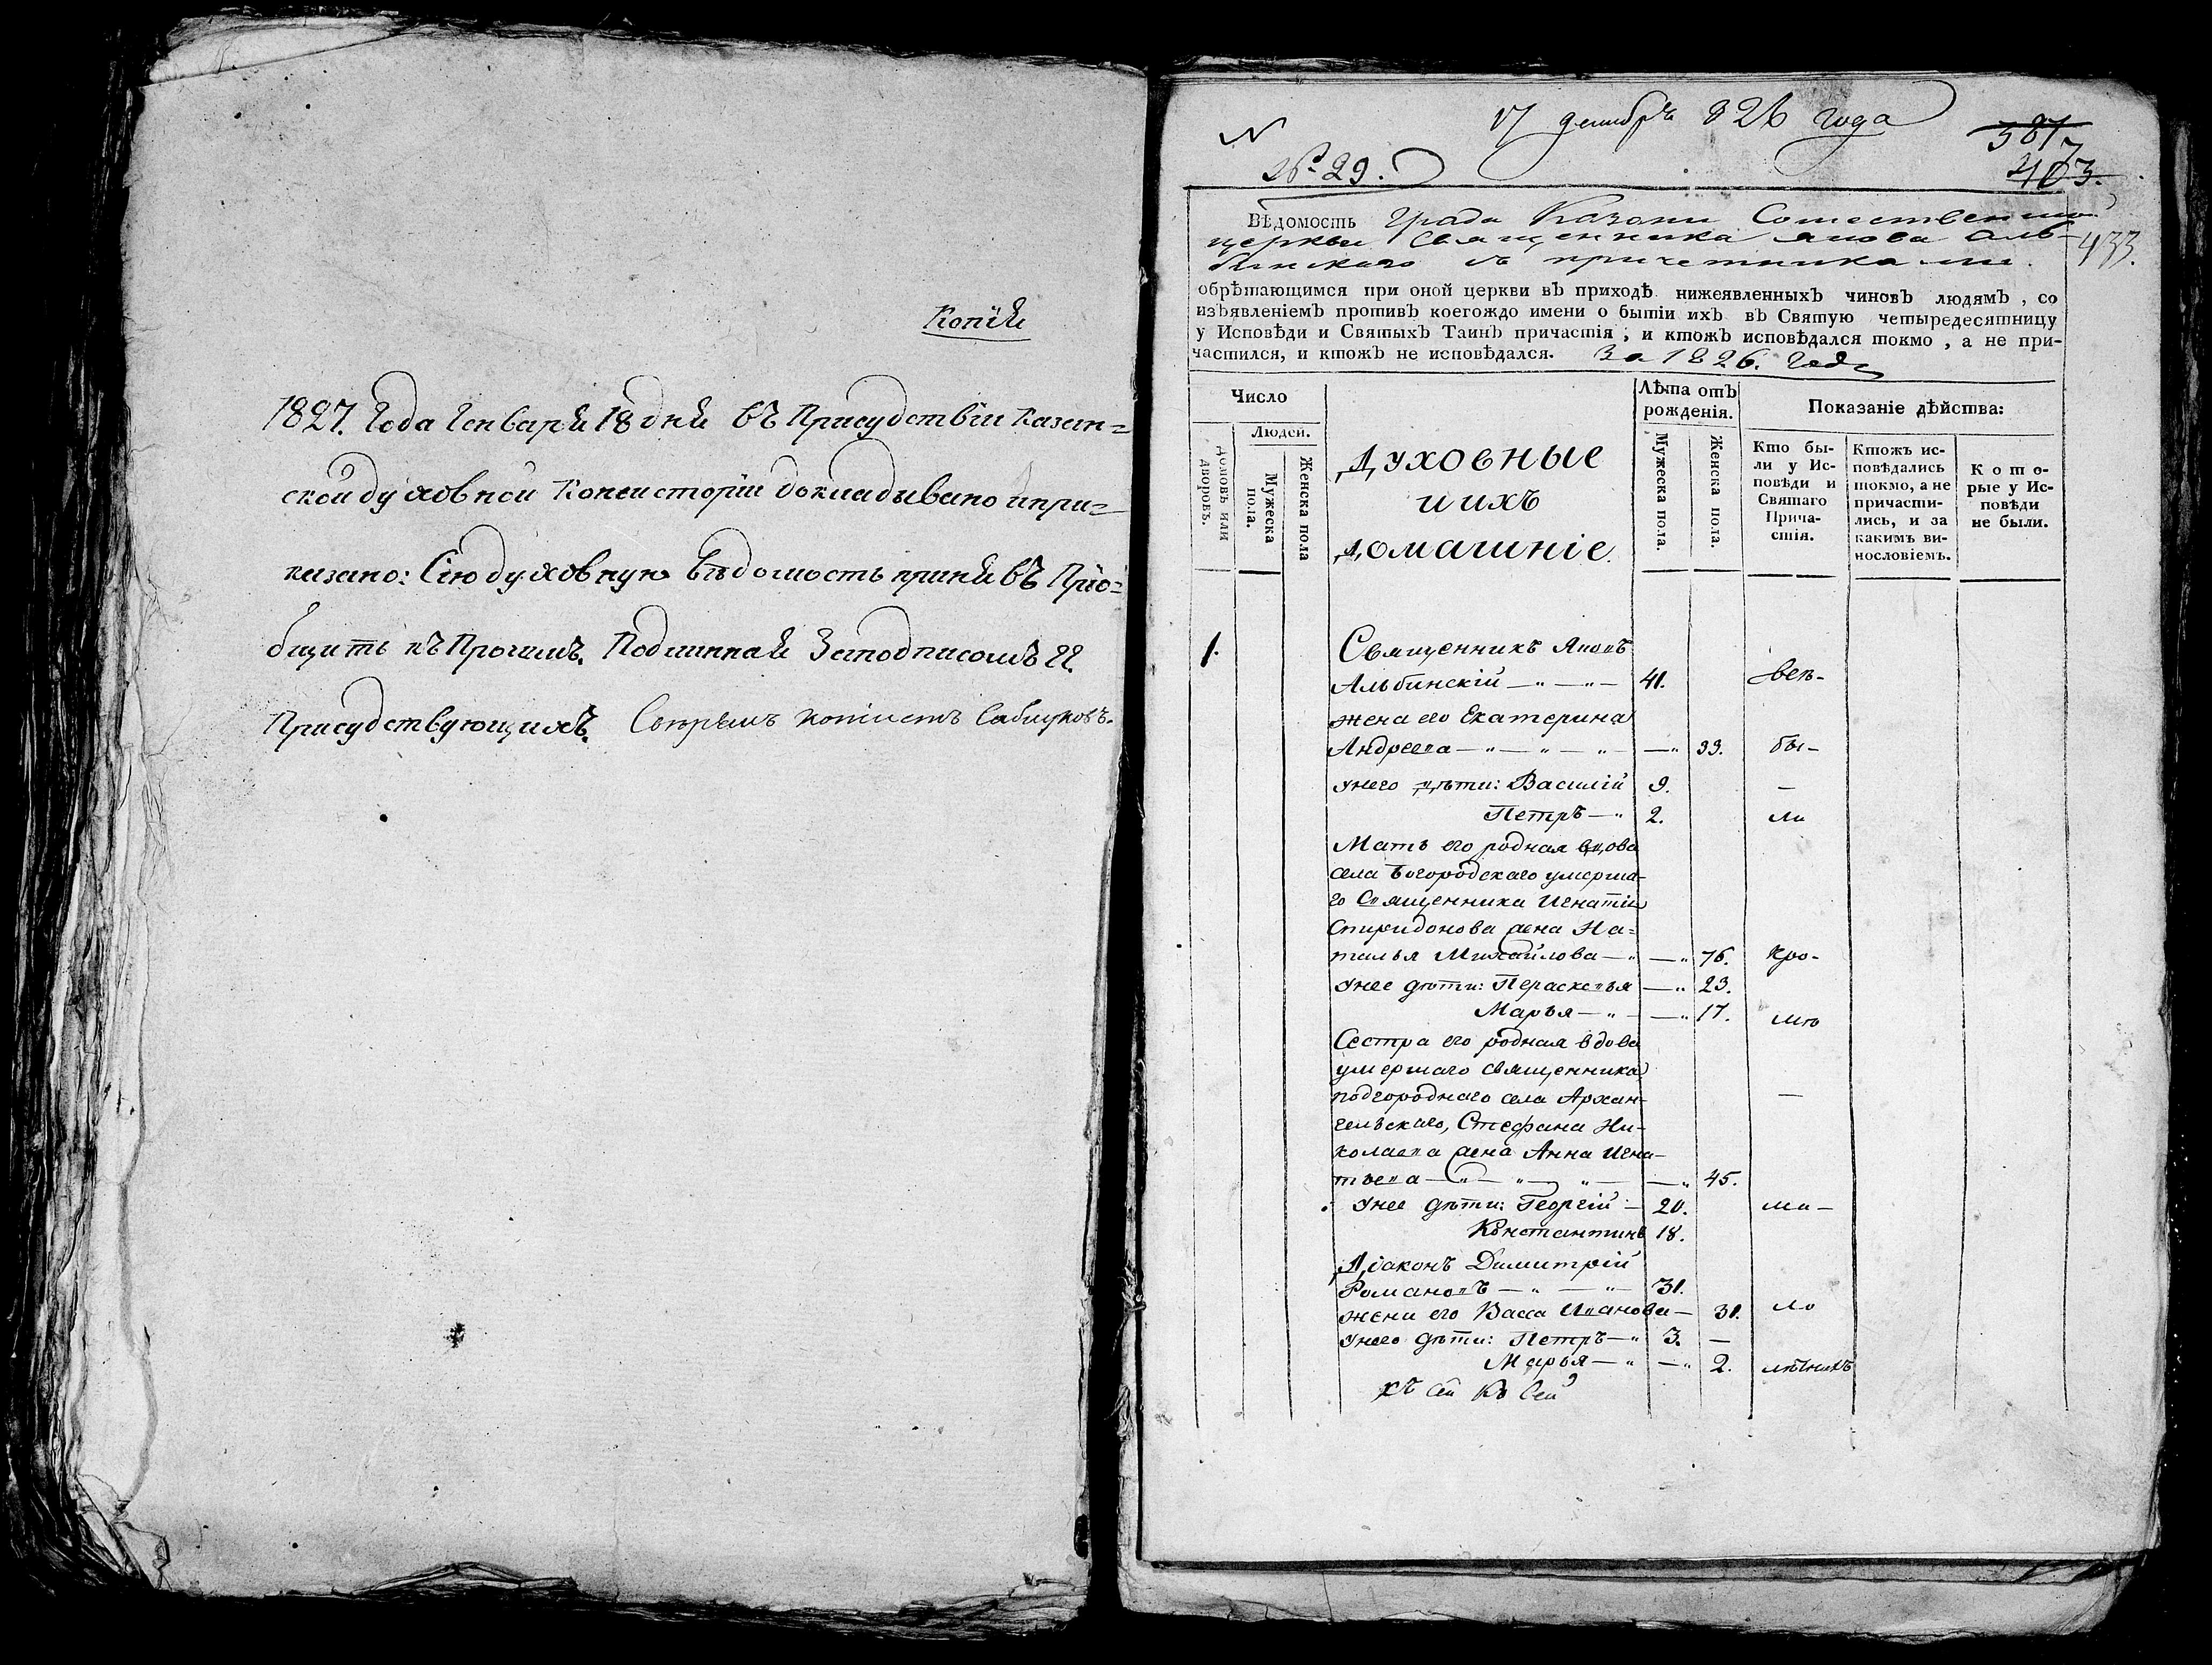 Копія
1827. Года Генваря 18 дня въ Присудствіи Казан=
ской духовной Консисторіи докладывано и при=
казано: Сію духовную вѣдомость принявъ Прио=
бщить къ Прочимъ. Подлинная За подписомъ гг.
Присудствующихъ. Свѣрялъ копіистъ
17 декабрь 826 года
N
№ 29.
387
403.
433.
Вѣдомость Града Казани Сошественской
церкви Священника Якова Аль-
бинскаго съ причетниками.
обрѣтающимся при оной церкви въ приходѣ нижеявленныхъ чиновъ людямъ, со
изъявленіемъ противъ коегождо имени о бытіи ихъ въ Святую четыредесятницу
у Исповѣди и Святыхъ Таинъ причастія; и ктожъ исповѣдался токмо, а не при-
частился, и ктожъ не исповѣдался. За 1826. Годъ
Число
Людей.
Домовъ или дворовъ.
Мужеска пола.
Женска пола
Духовные
и ихъ
домашніе
Лѣта отъ
рожденія.
Мужеска пола.
Женска пола.
Показаніе дѣйства:
Кто бы-
ли у Ис-
повѣди и
Святаго
Прича-
стія.
Ктожъ ис-
повѣдались
токмо, а не
причасти-
лись, и за
какимъ ви-
нословіемъ.
Кото-
рые у Ис-
повѣди
не были.
1. Священникъ Яковъ
Альбинскій — „ — „ — 41. Всѣ-
жена его Екатерина
Андреева — „ — „ — „ — — „ 33. бы-
у него дѣти: Василій 9. —
Петръ — „ 2. ли
Мать его родная вдова
села Богородскаго умерша-
го Священника Игнатія
Спиридонова жена На-
талья Михайлова — „ — „ 76. кро-
у нее дѣти: Параскевья — „ 23.
Марья — „ — — „ 17. мѣ
Сестра его родная вдова
умершаго священника
подгороднаго села Архан- —
гельскаго, Стефана Ни-
колаева жена Анна Игна-
тьева — „ — „ — „ — — „ 45.
у нее дѣти: Георгій — 20. ма-
Константинъ 18.
Діаконъ Димитрій
Романовъ — „ — „ — 31.
жена его Васса Иванова — 31. ло
у него дѣти: Петръ — „ 3. —
Марья — „ — „ 2. лѣтнихъ